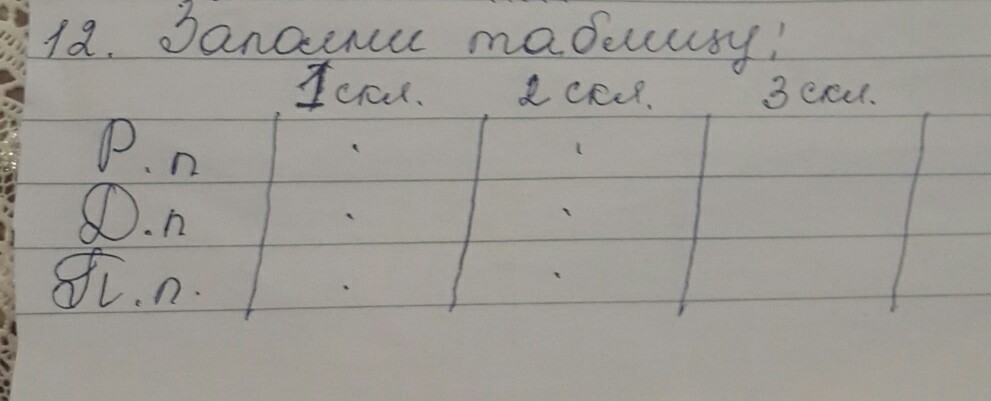 12. Заполни таблицу:
1 скл. 2 скл. 3 скл.
Р. п
Д. п
П. п.